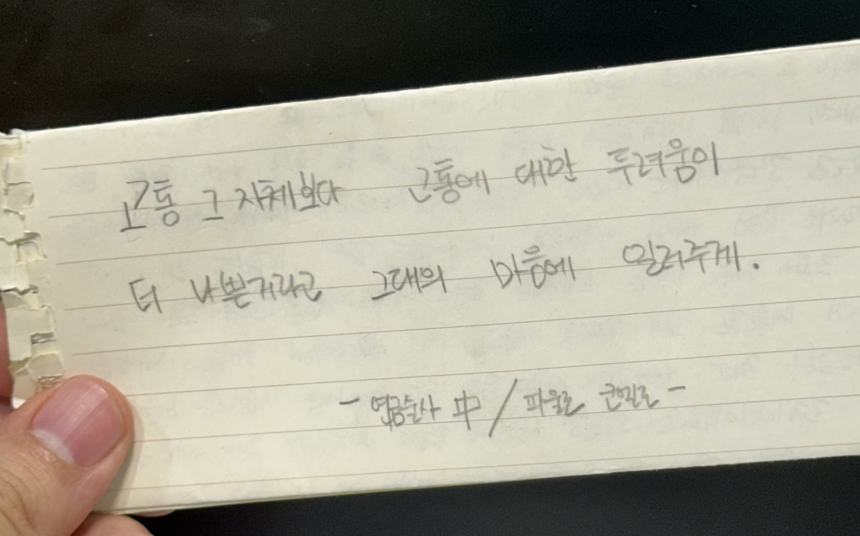 고통 그 자체보다 고통에 대한 두려움이
더 나쁜거라고 그대의 마음에 일러주게.
- 연금술사 中 / 파울로 코엘료 -